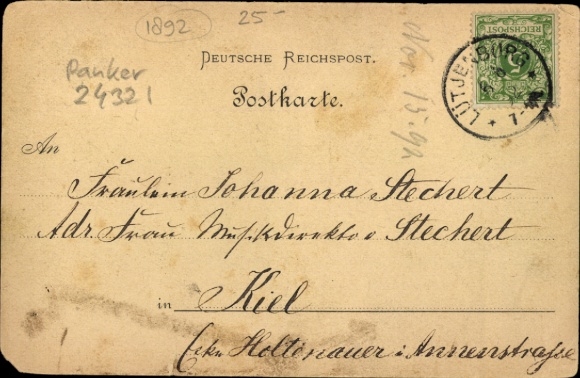 1892
25-
Panker
24321
Nov. 13. 92
DEUTSCHE REICHSPOST.
Postkarte.
REICHSPOST
5
LÜTJENBURG
7-8N
An
Fräulein Johanna Stechert
Adr. Frau Musikdirektor Stechert
in Kiel
Ecke Holtenauer & Annenstrasse